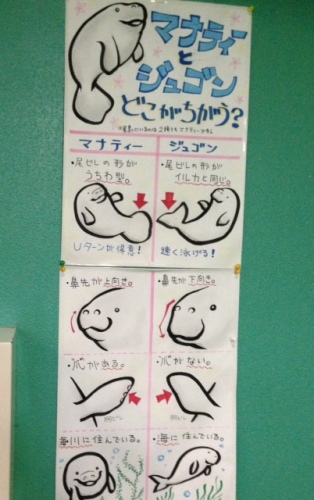 マナティーと
ジュゴン
どこがちがう?
マナティー
ジュゴン
・尾ビレの形がうちわ型。
・尾ビレの形がイルカと同じ。
Uターンが得意!
速く泳げる!
・鼻先が上向き。
・鼻先が下向き。
・爪がある。
・爪がない。
・海川に住んでいる。
・海に住んでいる。